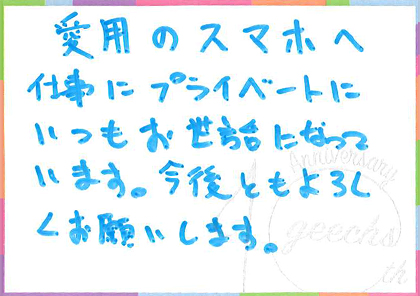 愛用のスマホへ
仕事にプライベートに
いつもお世話になって
います。今後ともよろし
くお願いします。
Anniversary
geechs
th